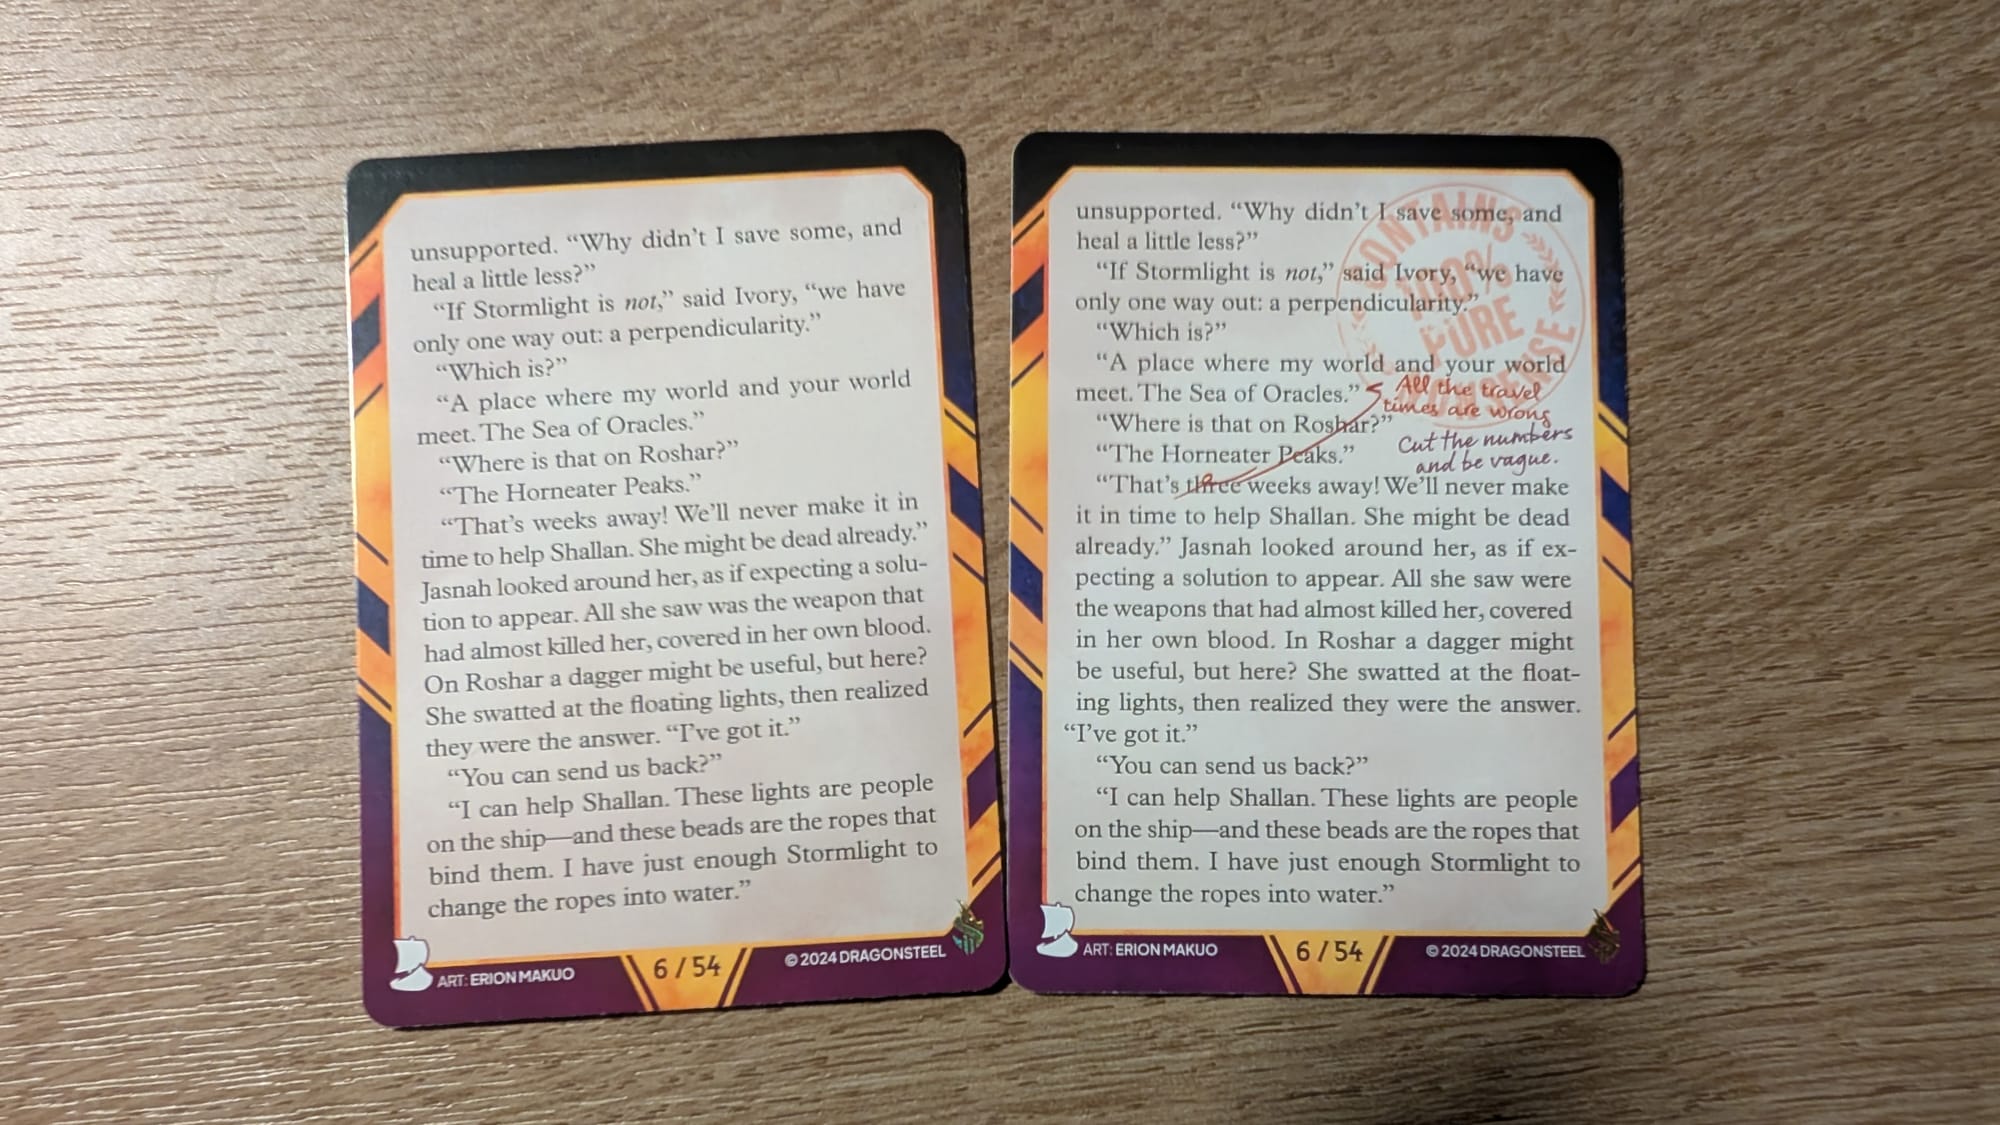 unsupported. “Why didn’t I save some, and
heal a little less?”
“If Stormlight is not,” said Ivory, “we have
only one way out: a perpendicularity.”
“Which is?”
“A place where my world and your world
meet. The Sea of Oracles.”
“Where is that on Roshar?”
“The Horneater Peaks.”
“That’s weeks away! We’ll never make it in
time to help Shallan. She might be dead already.”
Jasnah looked around her, as if expecting a solu-
tion to appear. All she saw was the weapon that
had almost killed her, covered in her own blood.
On Roshar a dagger might be useful, but here?
She swatted at the floating lights, then realized
they were the answer. “I’ve got it.”
“You can send us back?”
“I can help Shallan. These lights are people
on the ship—and these beads are the ropes that
bind them. I have just enough Stormlight to
change the ropes into water.”
ART: ERION MAKUO
6 / 54
© 2024 DRAGONSTEEL
unsupported. “Why didn’t I save some, and
heal a little less?”
“If Stormlight is not,” said Ivory, “we have
only one way out: a perpendicularity.”
“Which is?”
“A place where my world and your world
meet. The Sea of Oracles.”
“Where is that on Roshar?”
“The Horneater Peaks.”
“That’s three weeks away! We’ll never make
it in time to help Shallan. She might be dead
already.” Jasnah looked around her, as if ex-
pecting a solution to appear. All she saw were
the weapons that had almost killed her, covered
in her own blood. In Roshar a dagger might
be useful, but here? She swatted at the float-
ing lights, then realized they were the answer.
“I’ve got it.”
“You can send us back?”
“I can help Shallan. These lights are people
on the ship—and these beads are the ropes that
bind them. I have just enough Stormlight to
change the ropes into water.”
CONTAINS
100%
PURE
NONSENSE
All the travel
times are wrong
Cut the numbers
and be vague.
ART: ERION MAKUO
6 / 54
© 2024 DRAGONSTEEL